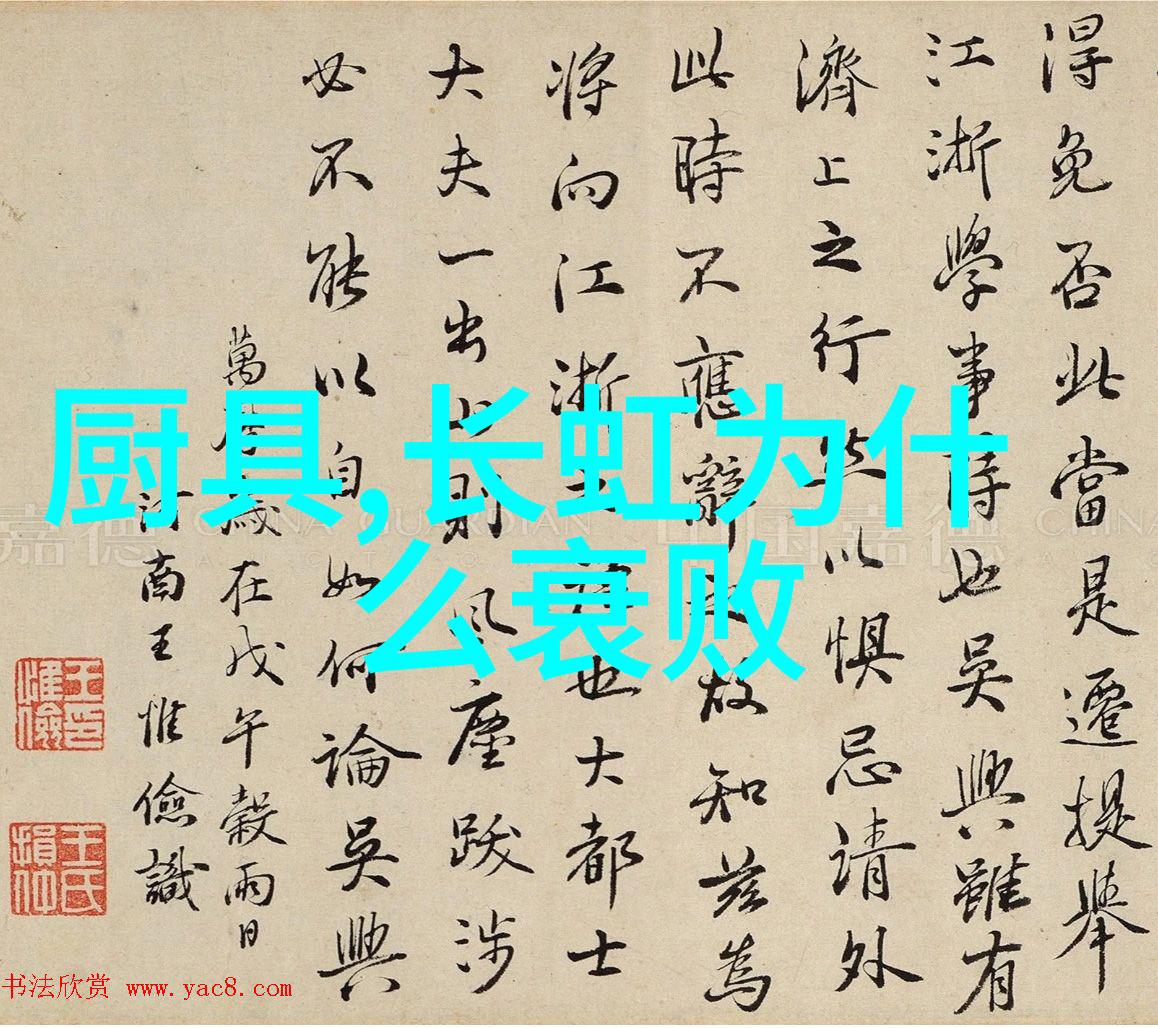 得免否此當是遷提舉
江浙學事時也吳興雖有
濟上之行
以懼忌請外
此時不應辭
故知茲為
將向江浙
也大都士
大夫一出
則風塵跋涉
必不能以自如何論吳興
萬曆
歲在戊午穀雨日
河南王惟儉識
厨具,长虹为什
么衰败
嘉德 CHINA GUARDIAN 中国嘉德 CHINA
书法欣赏 www.yac8.com